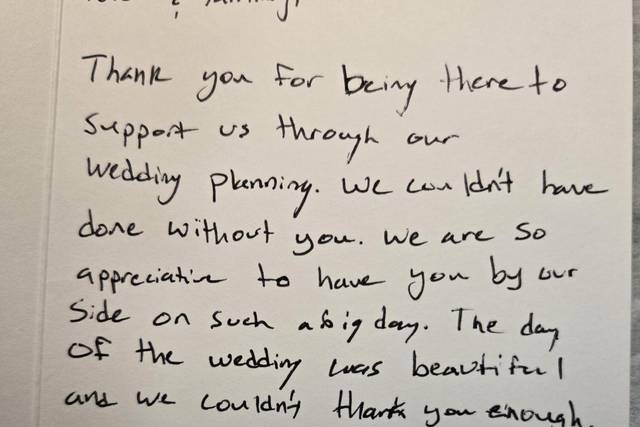 & family,
Thank you for being there to
support us through our
wedding planning. We couldn't have
done without you. We are so
appreciative to have you by our
side on such a big day. The day
of the wedding was beautiful
and we couldn't thank you enough.